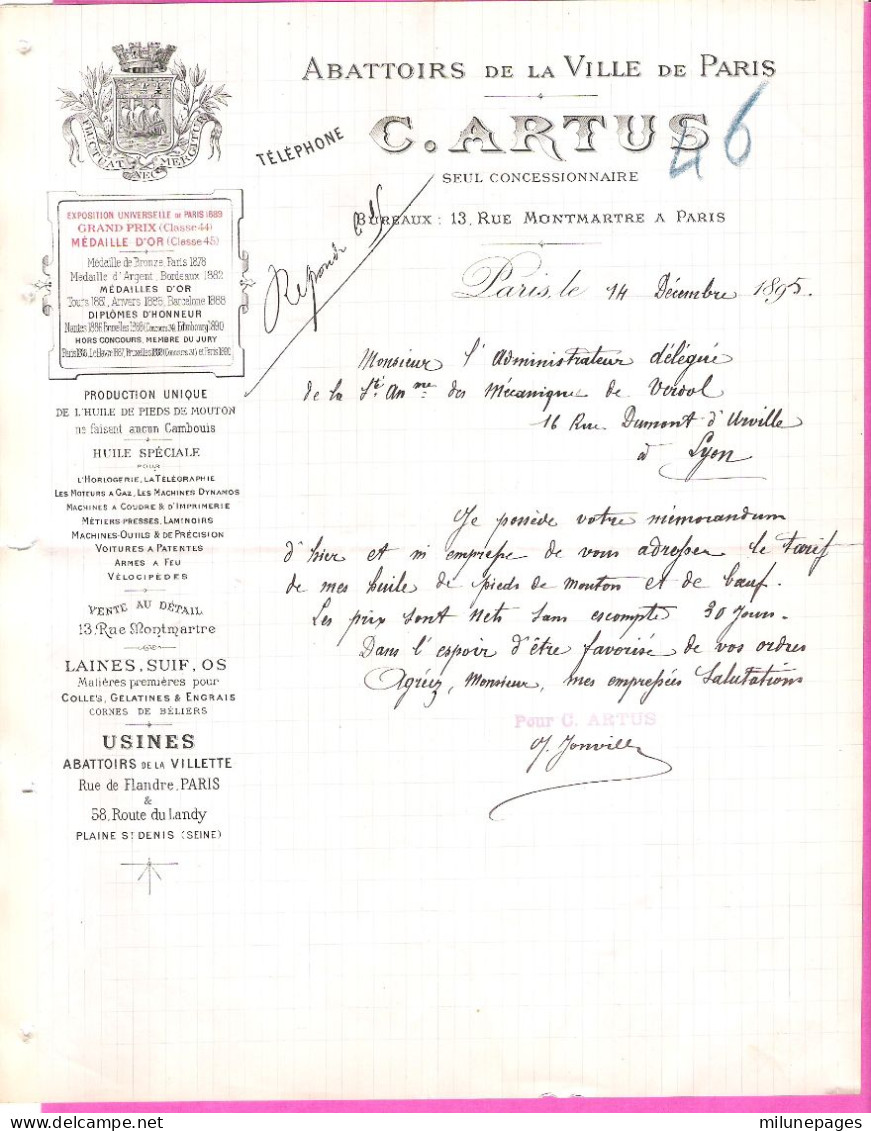 FLUCTUAT NEC MERGITUR
ABATTOIRS DE LA VILLE DE PARIS
TÉLÉPHONE
C. ARTUS
46
SEUL CONCESSIONNAIRE
BUREAUX : 13, RUE MONTMARTRE A PARIS
EXPOSITION UNIVERSELLE DE PARIS 1889
GRAND PRIX (Classe 44)
MÉDAILLE D'OR (Classe 45)
Médaille de Bronze, Paris 1878
Médaille d'Argent, Bordeaux 1882
MÉDAILLES D'OR
Tours 1881, Anvers 1885, Barcelone 1888
DIPLÔMES D'HONNEUR
HORS CONCOURS, MEMBRE DU JURY
PRODUCTION UNIQUE
DE L'HUILE DE PIEDS DE MOUTON
ne faisant aucun Cambouis
HUILE SPÉCIALE
POUR
L'HORLOGERIE, LA TÉLÉGRAPHIE
LES MOTEURS A GAZ, LES MACHINES DYNAMOS
MACHINES A COUDRE & D'IMPRIMERIE
MÉTIERS-PRESSES, LAMINOIRS
MACHINES-OUTILS & DE PRÉCISION
VOITURES A PATENTES
ARMES A FEU
VÉLOCIPÈDES
VENTE AU DÉTAIL
13, Rue Montmartre
LAINES, SUIF, OS
Matières premières pour
COLLES, GELATINES & ENGRAIS
CORNES DE BÉLIERS
USINES
ABATTOIRS DE LA VILLETTE
Rue de Flandre, PARIS
&
58, Route du Landy
PLAINE ST DENIS (SEINE)
Paris, le 14 Décembre 1895.
Monsieur l'Administrateur délégué
de la Sté Anme des Mécaniques de Verdol
16 Rue Dumont d'Urville
à Lyon
Je possède votre mémorandum
d'hier et m'empresse de vous adresser le tarif
de mes huile de pieds de mouton et de bœuf.
Les prix sont nets sans escompte 30 jours.
Dans l'espoir d'être favorisé de vos ordres
Agréez, Monsieur, mes empressées salutations
Pour C. ARTUS
Jonville
milunepages